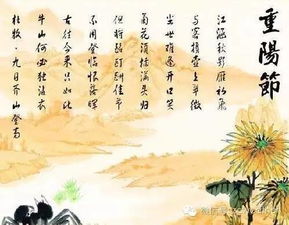 重陽節
江涵秋影雁初飛
與客攜壺上翠微
塵世難逢開口笑
菊花須插滿頭歸
但將酩酊酬佳節
不用登臨恨落暉
古往今來只如此
牛山何必獨沾衣
杜牧·九日齊山登高